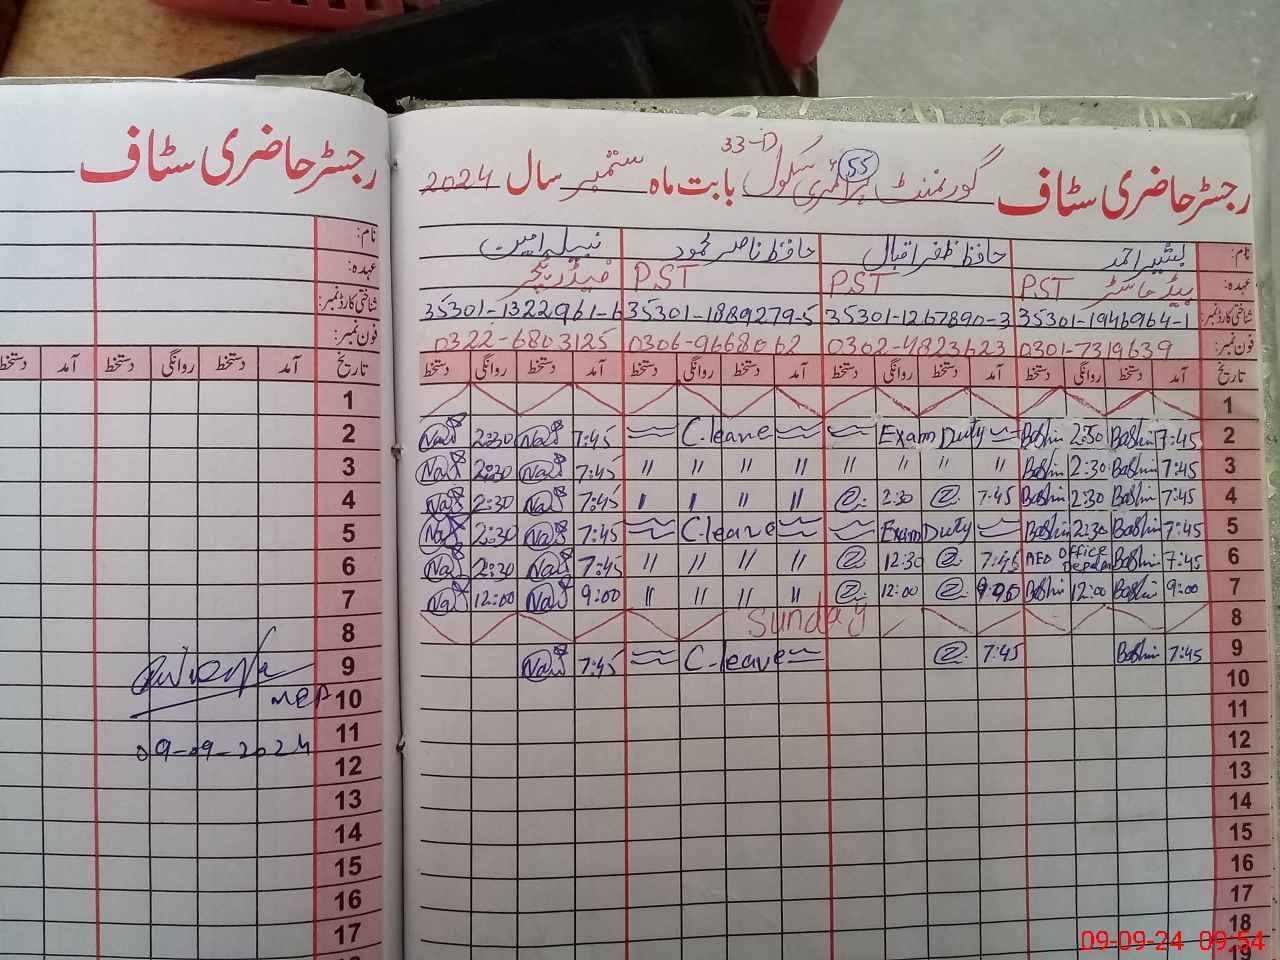 رجسٹر حاضری سٹاف گورنمنٹ پرائمری سکول 33-D بابت ماہ ستمبر سال 2024
55
نام: بشیر احمد حافظ ظفر اقبال حافظ ناصر محمود نبیلہ امین
عہدہ: ہیڈ ماسٹر PST PST PST
شناختی کارڈ نمبر: 35301-1946964-1 35301-1267890-3 35301-1889279-5 35301-1322961-6
فون نمبر: 0301-7319639 0302-4823623 0306-9668062 0322-6803125
تاریخ آمد دستخط روانگی دستخط آمد دستخط روانگی دستخط آمد دستخط روانگی دستخط آمد دستخط روانگی دستخط
1
2 7:45 Bashir 2:30 Bashir Exam Duty C.leave 7:45 2:30
3 7:45 Bashir 2:30 Bashir " " " " " " " " 7:45 2:30
4 7:45 Bashir 2:30 Bashir 7:45 2:30 " " " " 7:45 2:30
5 7:45 Bashir 2:30 Bashir Exam Duty C.leave 7:45 2:30
6 7:45 Bashir AEO office 7:45 12:30 " " " " 7:45 2:30
7 9:00 Bashir 12:00 Bashir 12:00 " " " " 9:00 12:00
8 Sunday
9 7:45 Bashir 7:45 C.leave 7:45
10
11
12
13
14
15
16
17
18
19
رجسٹر حاضری سٹاف
نام:
عہدہ:
شناختی کارڈ نمبر:
فون نمبر:
تاریخ آمد دستخط روانگی دستخط آمد دستخط
1
2
3
4
5
6
7
8
9
10
11
09-09-2024
12
13
14
15
16
17
09-09-24 09:54